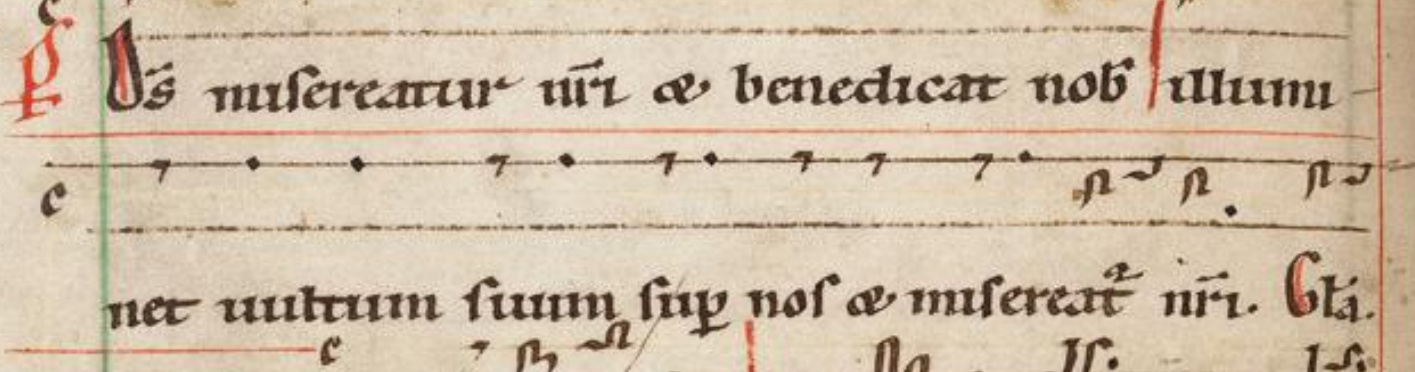 p̶ D̅s miſereatur nr̅i & benedicat nob̅ illumi
net uultum ſuum ſuꝑ noſ & miſereat᷑ nr̅i. Gl̅a.